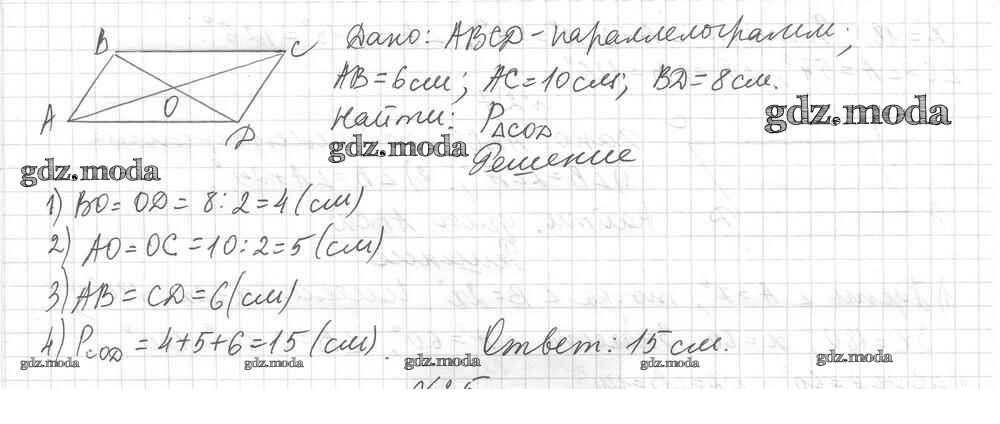 B
C
A
O
D
Дано: ABCD - параллелограмм;
AB = 6 см; AC = 10 см; BD = 8 см.
Найти: P△COD
gdz.moda
gdz.moda
gdz.moda
Решение
1) BO = OD = 8 : 2 = 4 (см)
2) AO = OC = 10 : 2 = 5 (см)
3) AB = CD = 6 (см)
4) PCOD = 4 + 5 + 6 = 15 (см). Ответ: 15 см.
gdz.moda gdz.moda gdz.moda gdz.moda gdz.moda